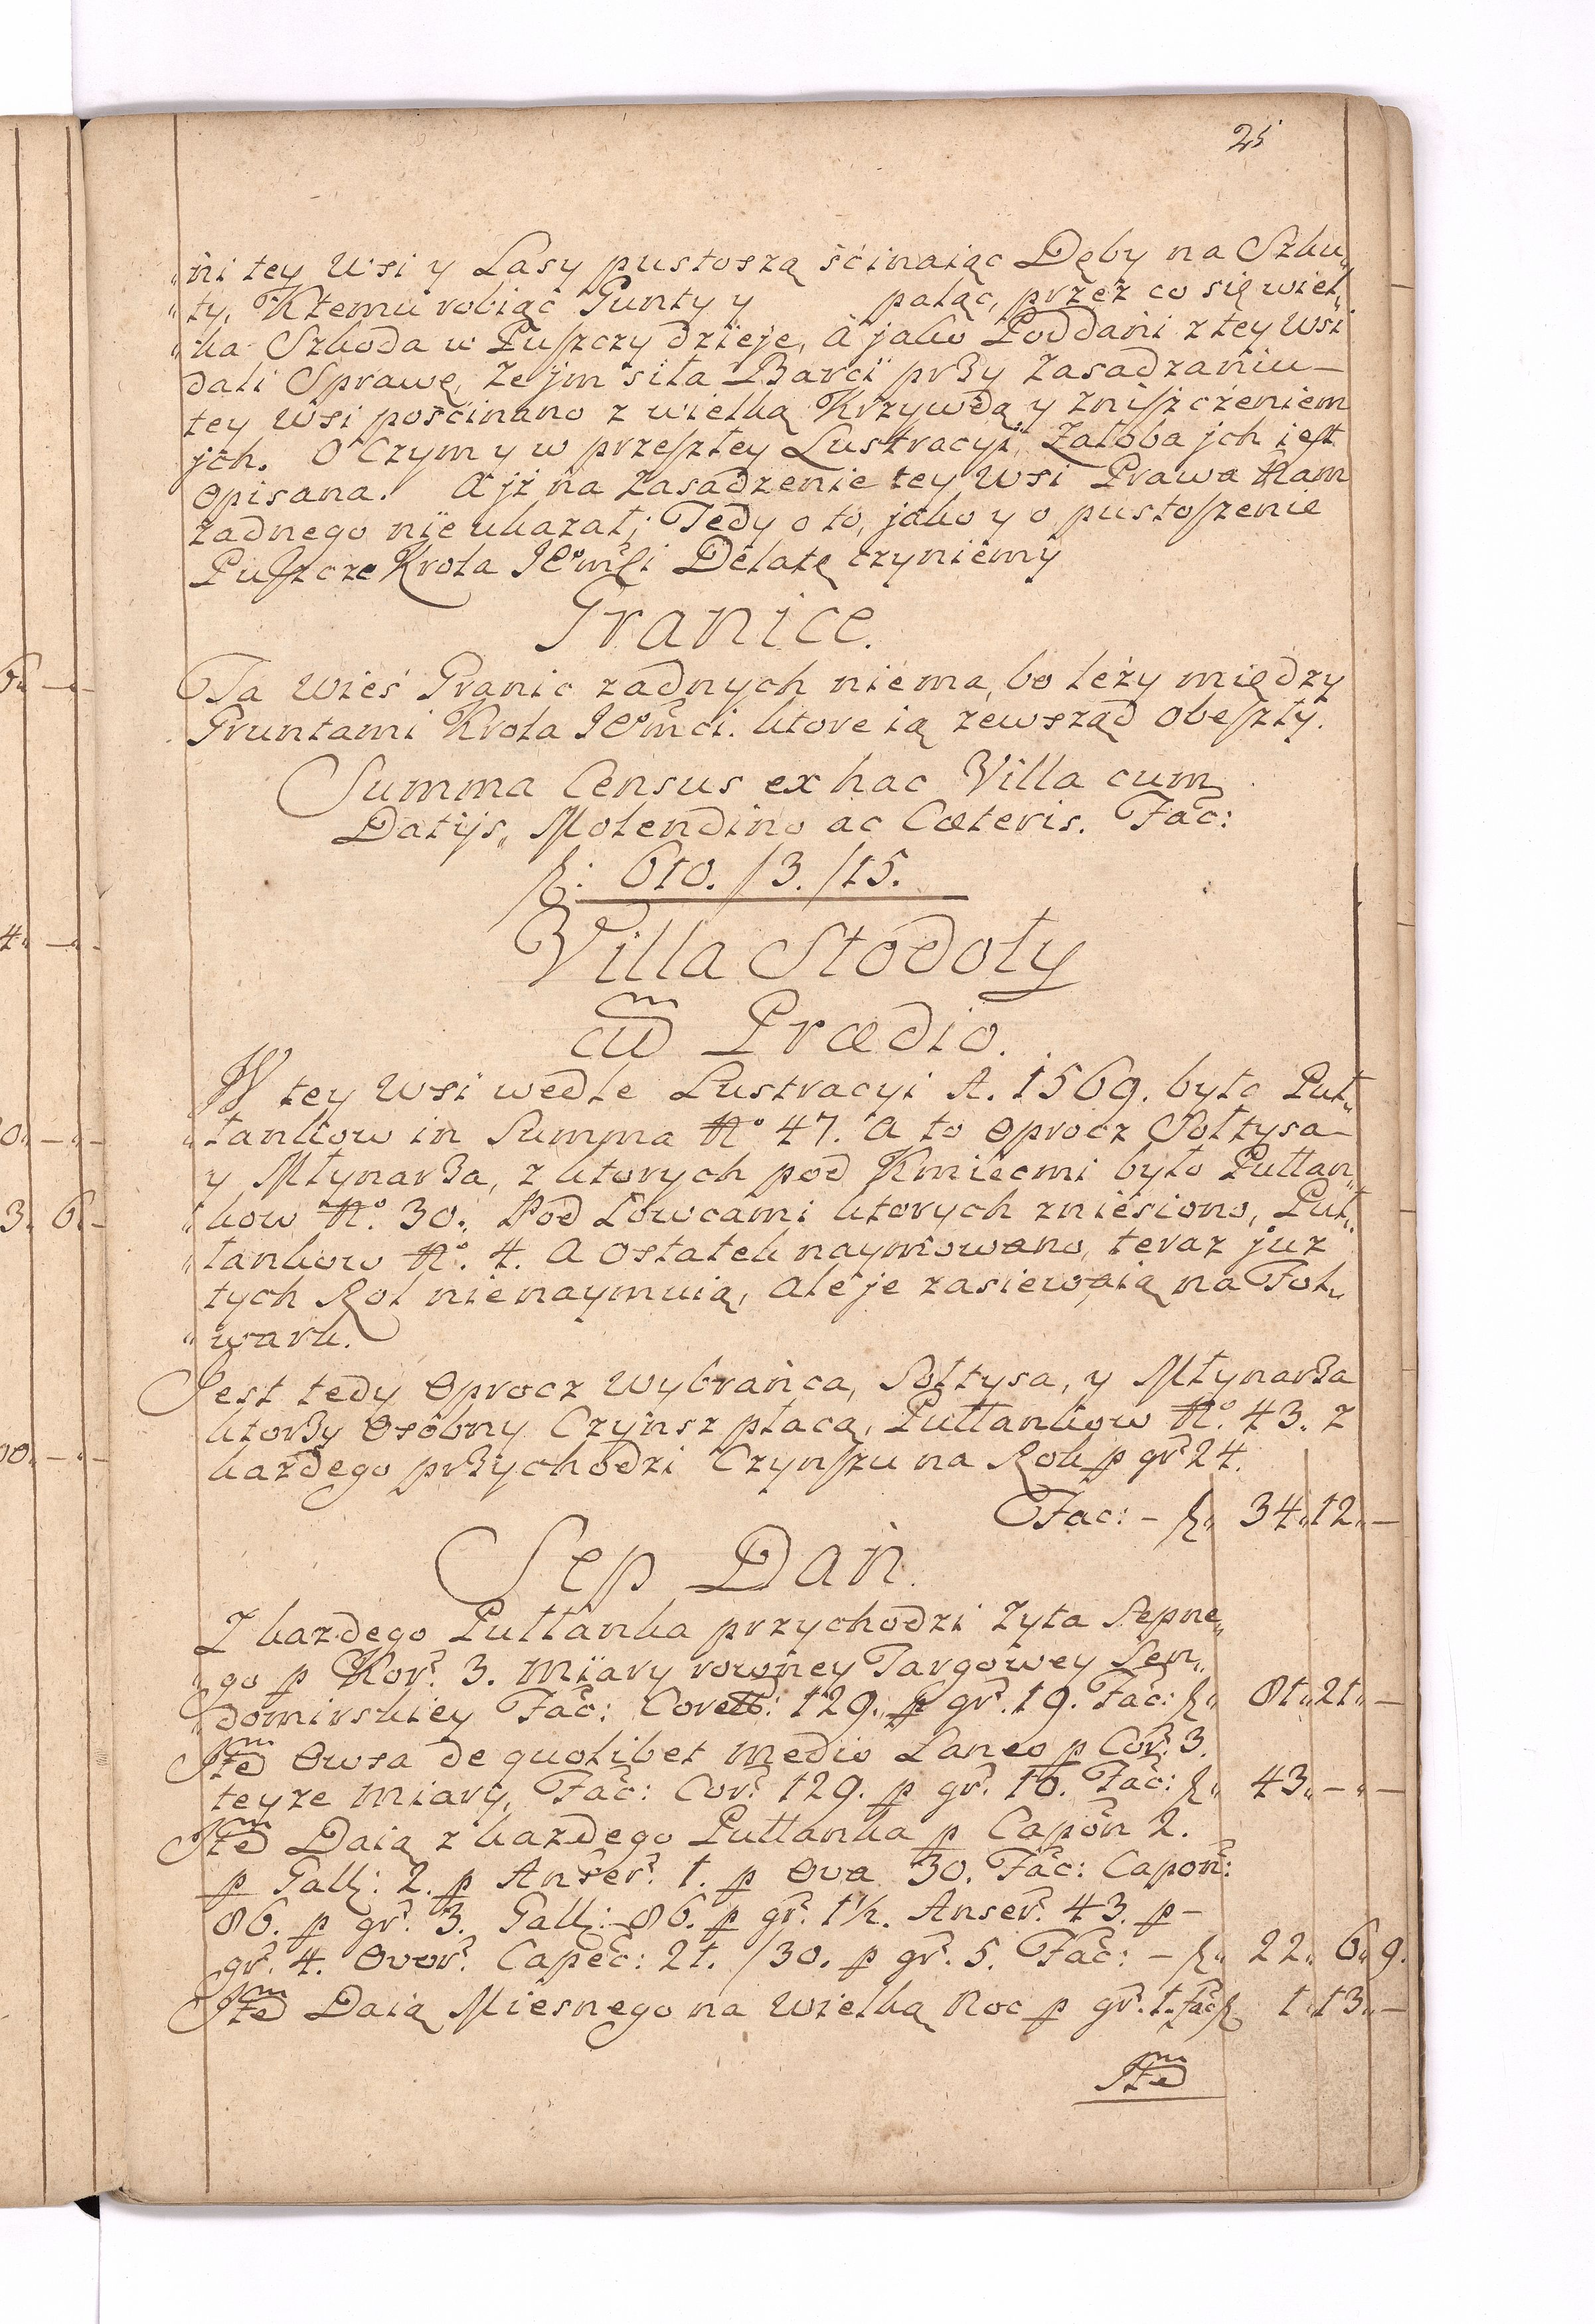 25
"ni tey Wsi y Lasy pustoszą śćinaiąc Dęby na Szku„
"ty, Ktemu robiąc Gunty y paląc, przez co się wiel„
"ka Szkoda w Puszczy dzieje, a jako Poddani z tey Wsi
dali Sprawę, że jm siła Barci przy Zasadzaniu —
tey Wsi pościnano z wielką Krzywdą y zniszczeniem
jch. O Czym y w przeszłey Lustracyi, Załoba jch iest
opisana. A jż na Zasadzenie tey Wsi Prawa Nam
żadnego nie ukazał; Tedy o to, jako y o pustoszenie
Puszcze Krola JEº mśći Delatę czyniemy
Granice.
Ta Wieś Granic żadnych niema, bo leży między
Gruntami Krola JEº mći. ktore ią zewsząd obeszły.
Summa Census ex hac Villa cum
Datijs, Molendino ac Cæteris. Fac:
fl: 610. /3. /15.
Villa Stodoły
cum Prædio.
W tey Wsi wedle Lustracyi A. 1569. było Puł„
"łankow in Summa Nº 47. a to oprocz Sołtysa —
y Młynarza, z ktorych pod Kmiecmi było Pułłan„
"kow Nº. 30. Pod Łowcami ktorych zniesiono, Puł„
"łankow Nº. 4. a ostatek naymowano, teraz już
tych Rol nienaymuią, ale je zasiewaią na Fol„
"wark.
Jest tedy oprocz Wybrańca, Sołtysa, y Młynarza
ktorzy osobny Czynsz płacą, Pułłankow Nº. 43. z
każdego przychodzi Czynszu na Rok p gr 24.
Fac: – fl„ 34„ 12„ —
Sep Dań.
Z każdego Pułłanka przychodzi Żyta Sepne„
"go p Kor. 3. miary rowney Targowey Sen„
"domirskiey Fac: Coret: 129. p gr. 19. Fac: fl„ 81„ 21„ —
Item Owsa de quolibet medio Laneo p Cor. 3.
teyże miary, Fac: Cor. 129. p gr. 10. Fac: fl„ 43„ — „ —
Item Daią z każdego Pułłanka p Capon 2.
p Gall: 2. p Anser. 1. p Ova 30. Fac: Capon:
86. p gr. 3. Gall: 86. p gr. 1½. Anser. 43. p —
gr. 4. Ovor. Capec: 21. /30. p gr. 5. Fac: – fl„ 22„ 6„ 9.
Item Daią Miesnego na Wielką Noc p gr. 1. Fac fl 1„ 13„ —
Item